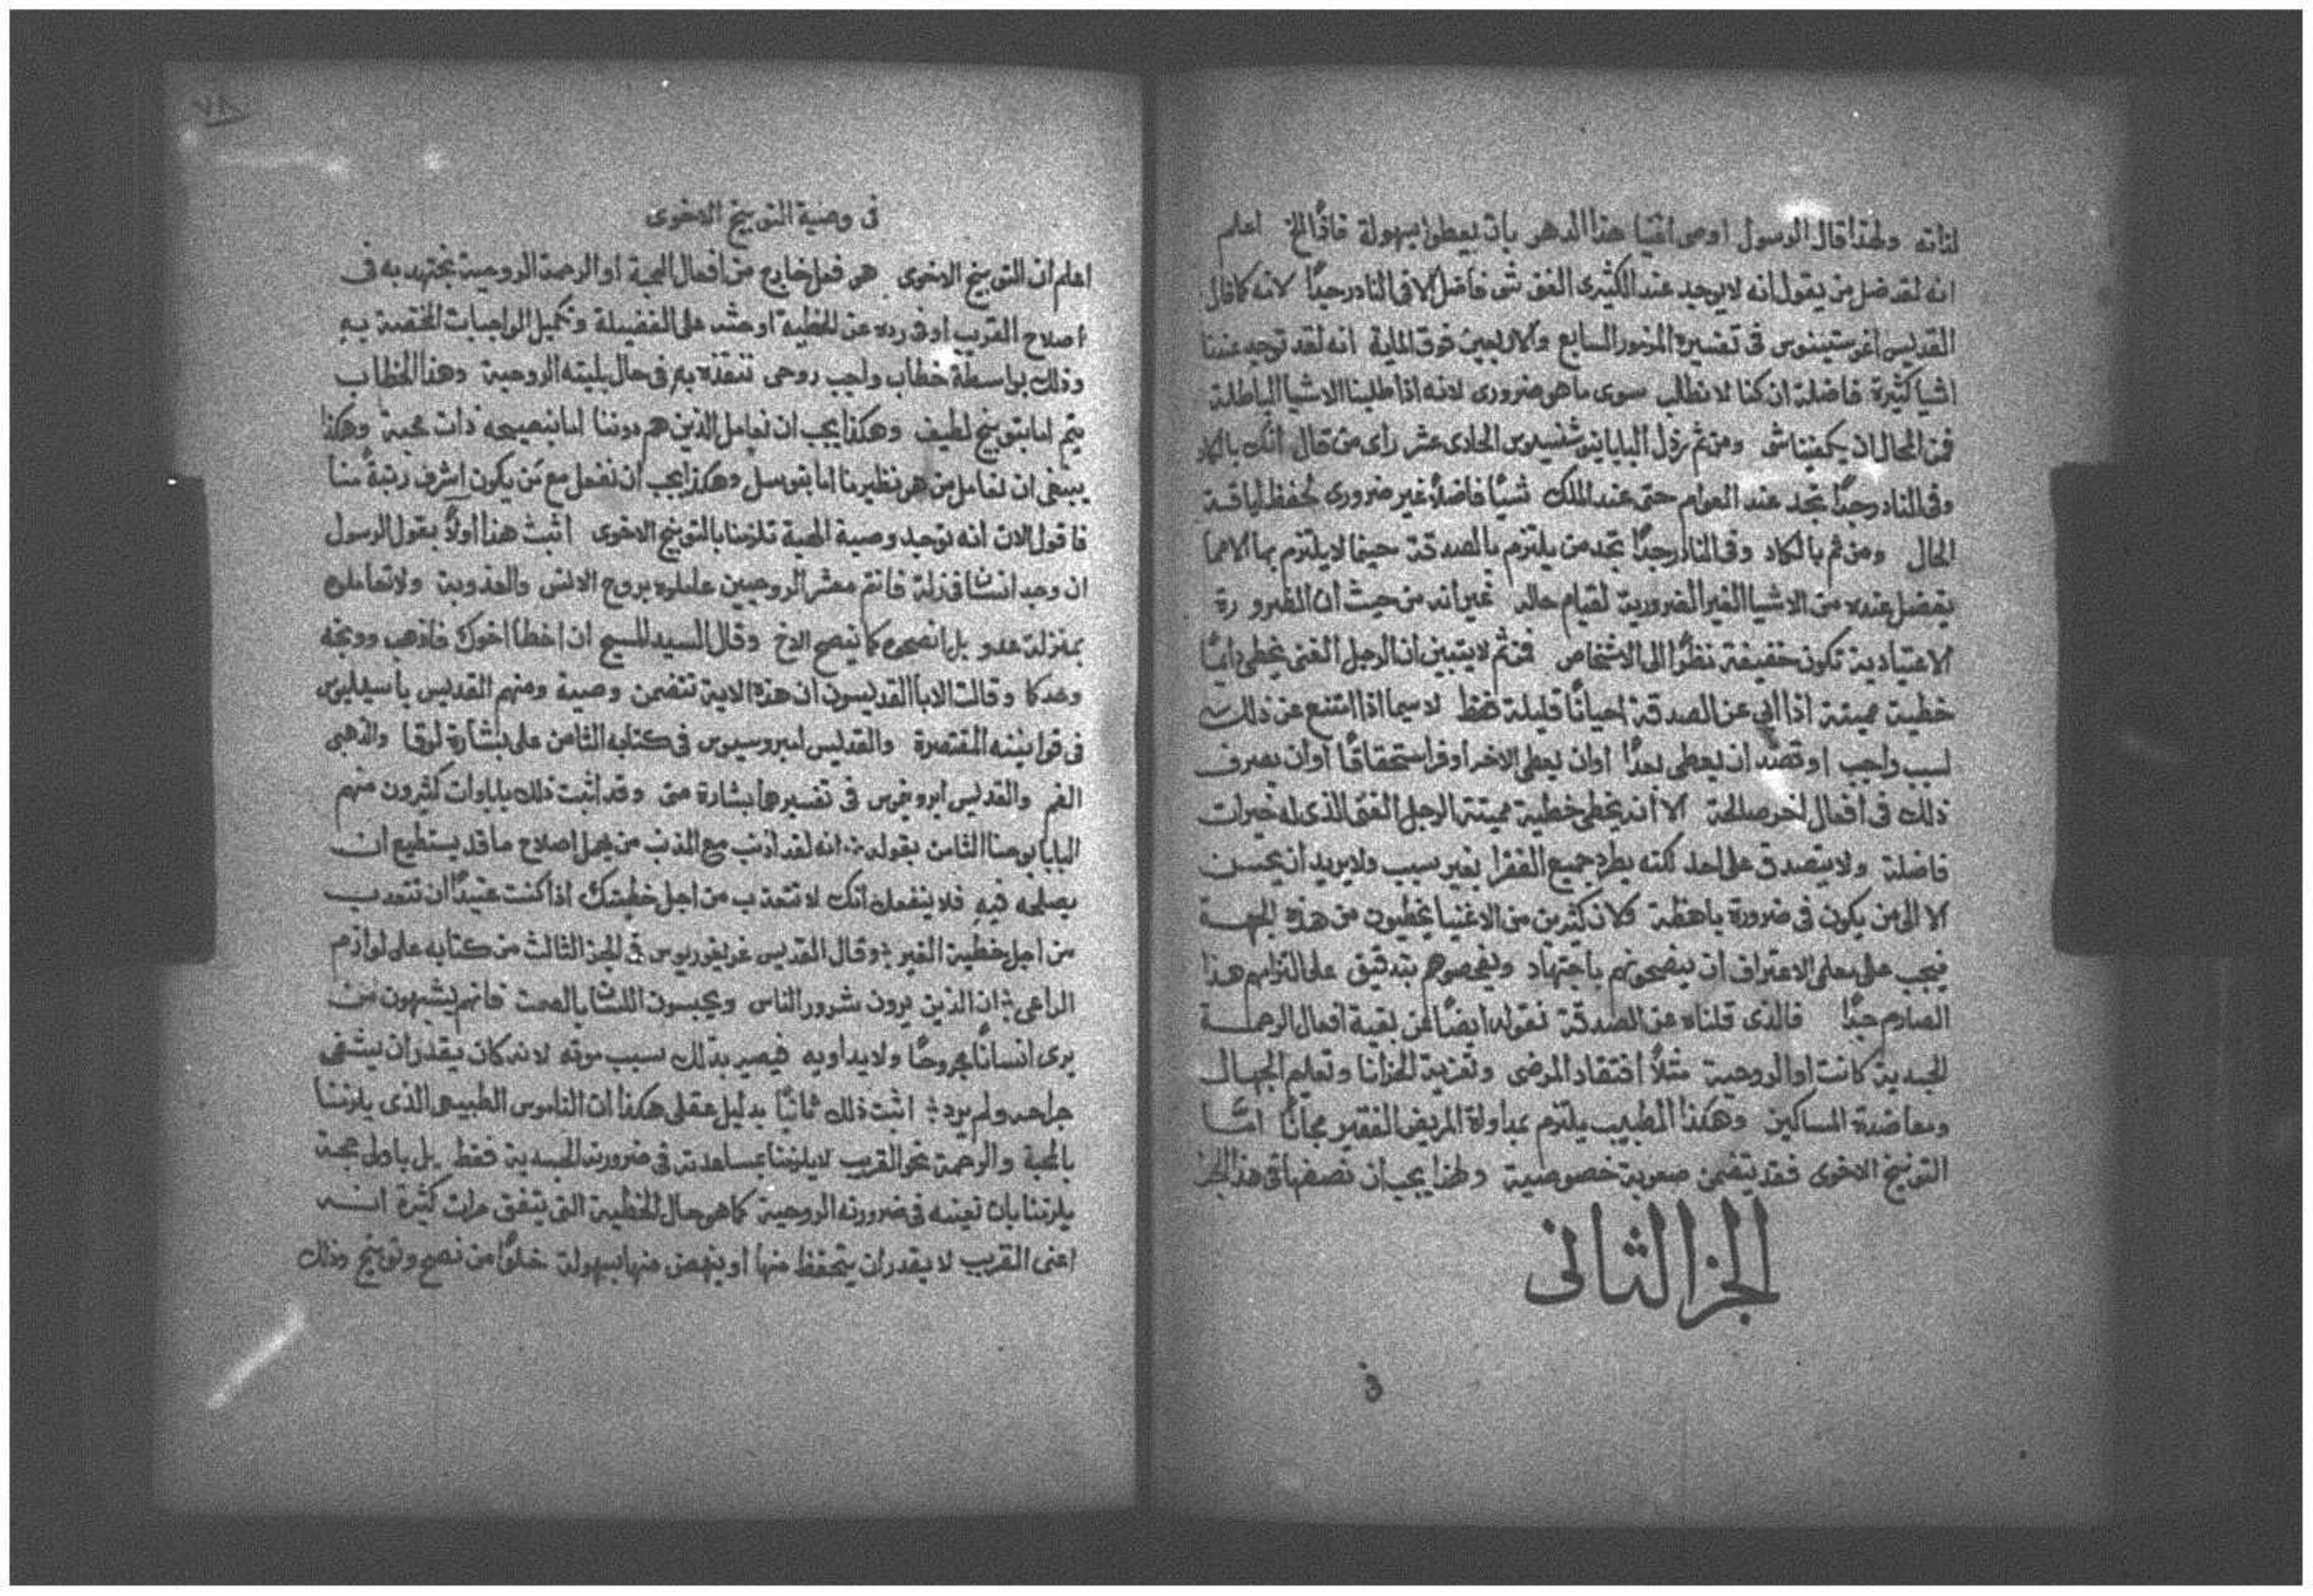 لذاته ولهذا قال الرسول اوصى اغنيا هذا الدهر بان يعطوا بسهولة فاذًا الخ اعلم
انه لقد ضل من يقول انه لا يوجد عند الكثيرى الغنى شى فاضل الا فى النادر جدًا لانه كما قال
القديس اغوستينوس فى تفسيره المزمور السابع والاربعين فوق الماية انه لقد توجد عندنا
اشيا كثيرة فاضلة ان كنا لا نطلب سوى ما هو ضرورى لانه اذا طلبنا الاشيا الباطلة
فمن المحال ان يكفينا شى ومن ثم رذل البابا اينوشنسيوس الحادى عشر راى من قال انك بالكاد
وفى النادر جدًا تجد عند العوام حتى عند الملك شيًا فاضلًا غير ضرورى لحفظ لياقة
الحال ومن ثم بالكاد وفى النادر جدًا تجد من يلتزم بالصدقة حينما لا يلتزم بها الا مما
يفضل عنده من الاشيا الغير الضرورية لقيام حاله غير انه من حيث ان الضرورة
الاعتيادية تكون خفيفة نظرًا الى الاشخاص فمن ثم لا يتبين ان الرجل الغنى يخطى دايمًا
خطية مميتة اذا ابى عن الصدقة احيانًا قليلة فقط لا سيما اذا امتنع عن ذلك
لسبب واجب او قصد ان يعطى بعدًا او ان يعطى لاخر اوفر استحقاقًا او ان يصرف
ذلك فى افعال اخر صالحة الا انه يخطى خطية مميتة الرجل الغنى الذى له خيرات
فاضلة ولا يتصدق على احد لكنه يطرد جميع الفقرا بغير سبب ولا يريد ان يحسن
الا الى من يكون فى ضرورة باهظة ولان كثيرين من الاغنيا يخطيون من هذه الجهة
فيجب على معلمى الاعتراف ان ينصحونهم باجتهاد ويفحصوهم بتدقيق على التزامهم هذا
الصارم جدًا فالذى قلناه عن الصدقة نقوله ايضًا عن بقية افعال الرحمة
الجسدية كانت او الروحية مثلًا افتقاد المرضى وتعزية الحزانا وتعليم الجهال
ومعاضدة المساكين وهكذا الطبيب يلتزم بمداواة المريض الفقير مجانًا امّا
التوبيخ الاخوى فقد يتضمن صعوبة خصوصية ولهذا يجب ان نصفها فى هذا الجز
الجز الثانى
فى
٧٨
فى وصية التوبيخ الاخوى
اعلم ان التوبيخ الاخوى هو فعل خارج من افعال المحبة او الرحمة الروحية يجتهد به فى
اصلاح القريب او فى رده عن الخطية او حثه على الفضيلة وتكميل الواجبات المختصة به
وذلك بواسطة خطاب واجب روحى تنقذه به فى حال بليته الروحية وهذا الخطاب
يتم اما بتوبيخ لطيف وهكذا يجب ان نعامل الذين هم دوننا اما بنصيحه ذات محبة وهكذا
ينبغى ان نعامل من هو نظيرنا اما بتوسل وهكذا يجب ان نفعل مع مَن يكون اشرف رتبةً منا
فاقول الان انه توجد وصية الهية تلزمنا بالتوبيخ الاخوى اثبت هذا اولًا بقول الرسول
ان وجد انسان فى زلة فانتم معشر الروحيين عاملوه بروح الانس والعذوبة ولا تعاملوه
بمنزلة عدو بل انصحوه كما ينصح الاخ وقال السيد المسيح ان اخطا اخوك فاذهب ووبخه
وحدكا وقالت الابا القديسون ان هذه الاية تتضمن وصية ومنهم القديس باسيليوس
فى قوانينه المقتصرة والقديس امبروسيوس فى كتابه الثامن على بشارة لوقا والذهبى
الفم والقديس ايرونيموس فى تفسيرهما بشارة متى وقد اثبت ذلك باباوات كثيرون منهم
البابا يوحنا الثامن بقوله انه لقد اذنب مع المذنب من يهمل اصلاح ما قد يستطيع ان
يصلحه فيه فلا ينفعك انك لا تتعذب من اجل خطيتك اذا كنت عتيدًا ان تتعذب
من اجل خطية الغير وقال القديس غريغوريوس فى الجز الثالث من كتابه على لوازم
الراعى ان الذين يرون شرور الناس ويحبسون اللسان بالصمت فانهم يشبهون من
يرى انسانًا مجروحًا ولا يداويه فيصير بذلك سبب موته لانه كان يقدر ان يشفى
جراحه ولم يرد اثبت ذلك ثانيًا بدليل عقلى هكذا ان الناموس الطبيعى الذى يلزمنا
بالمحبة والرحمة نحو القريب لا يلزمنا بمساعدته فى ضرورته الجسدية فقط بل باولى حجة
يلزمنا بان نعينه فى ضرورته الروحية كما هى حال الخطية التى يتفق مرات كثيرة انه
اعنى القريب لا يقدر ان يتحفظ منها او ينهض منها بسهولة خلوًا من نصح وتوبيخ وذلك